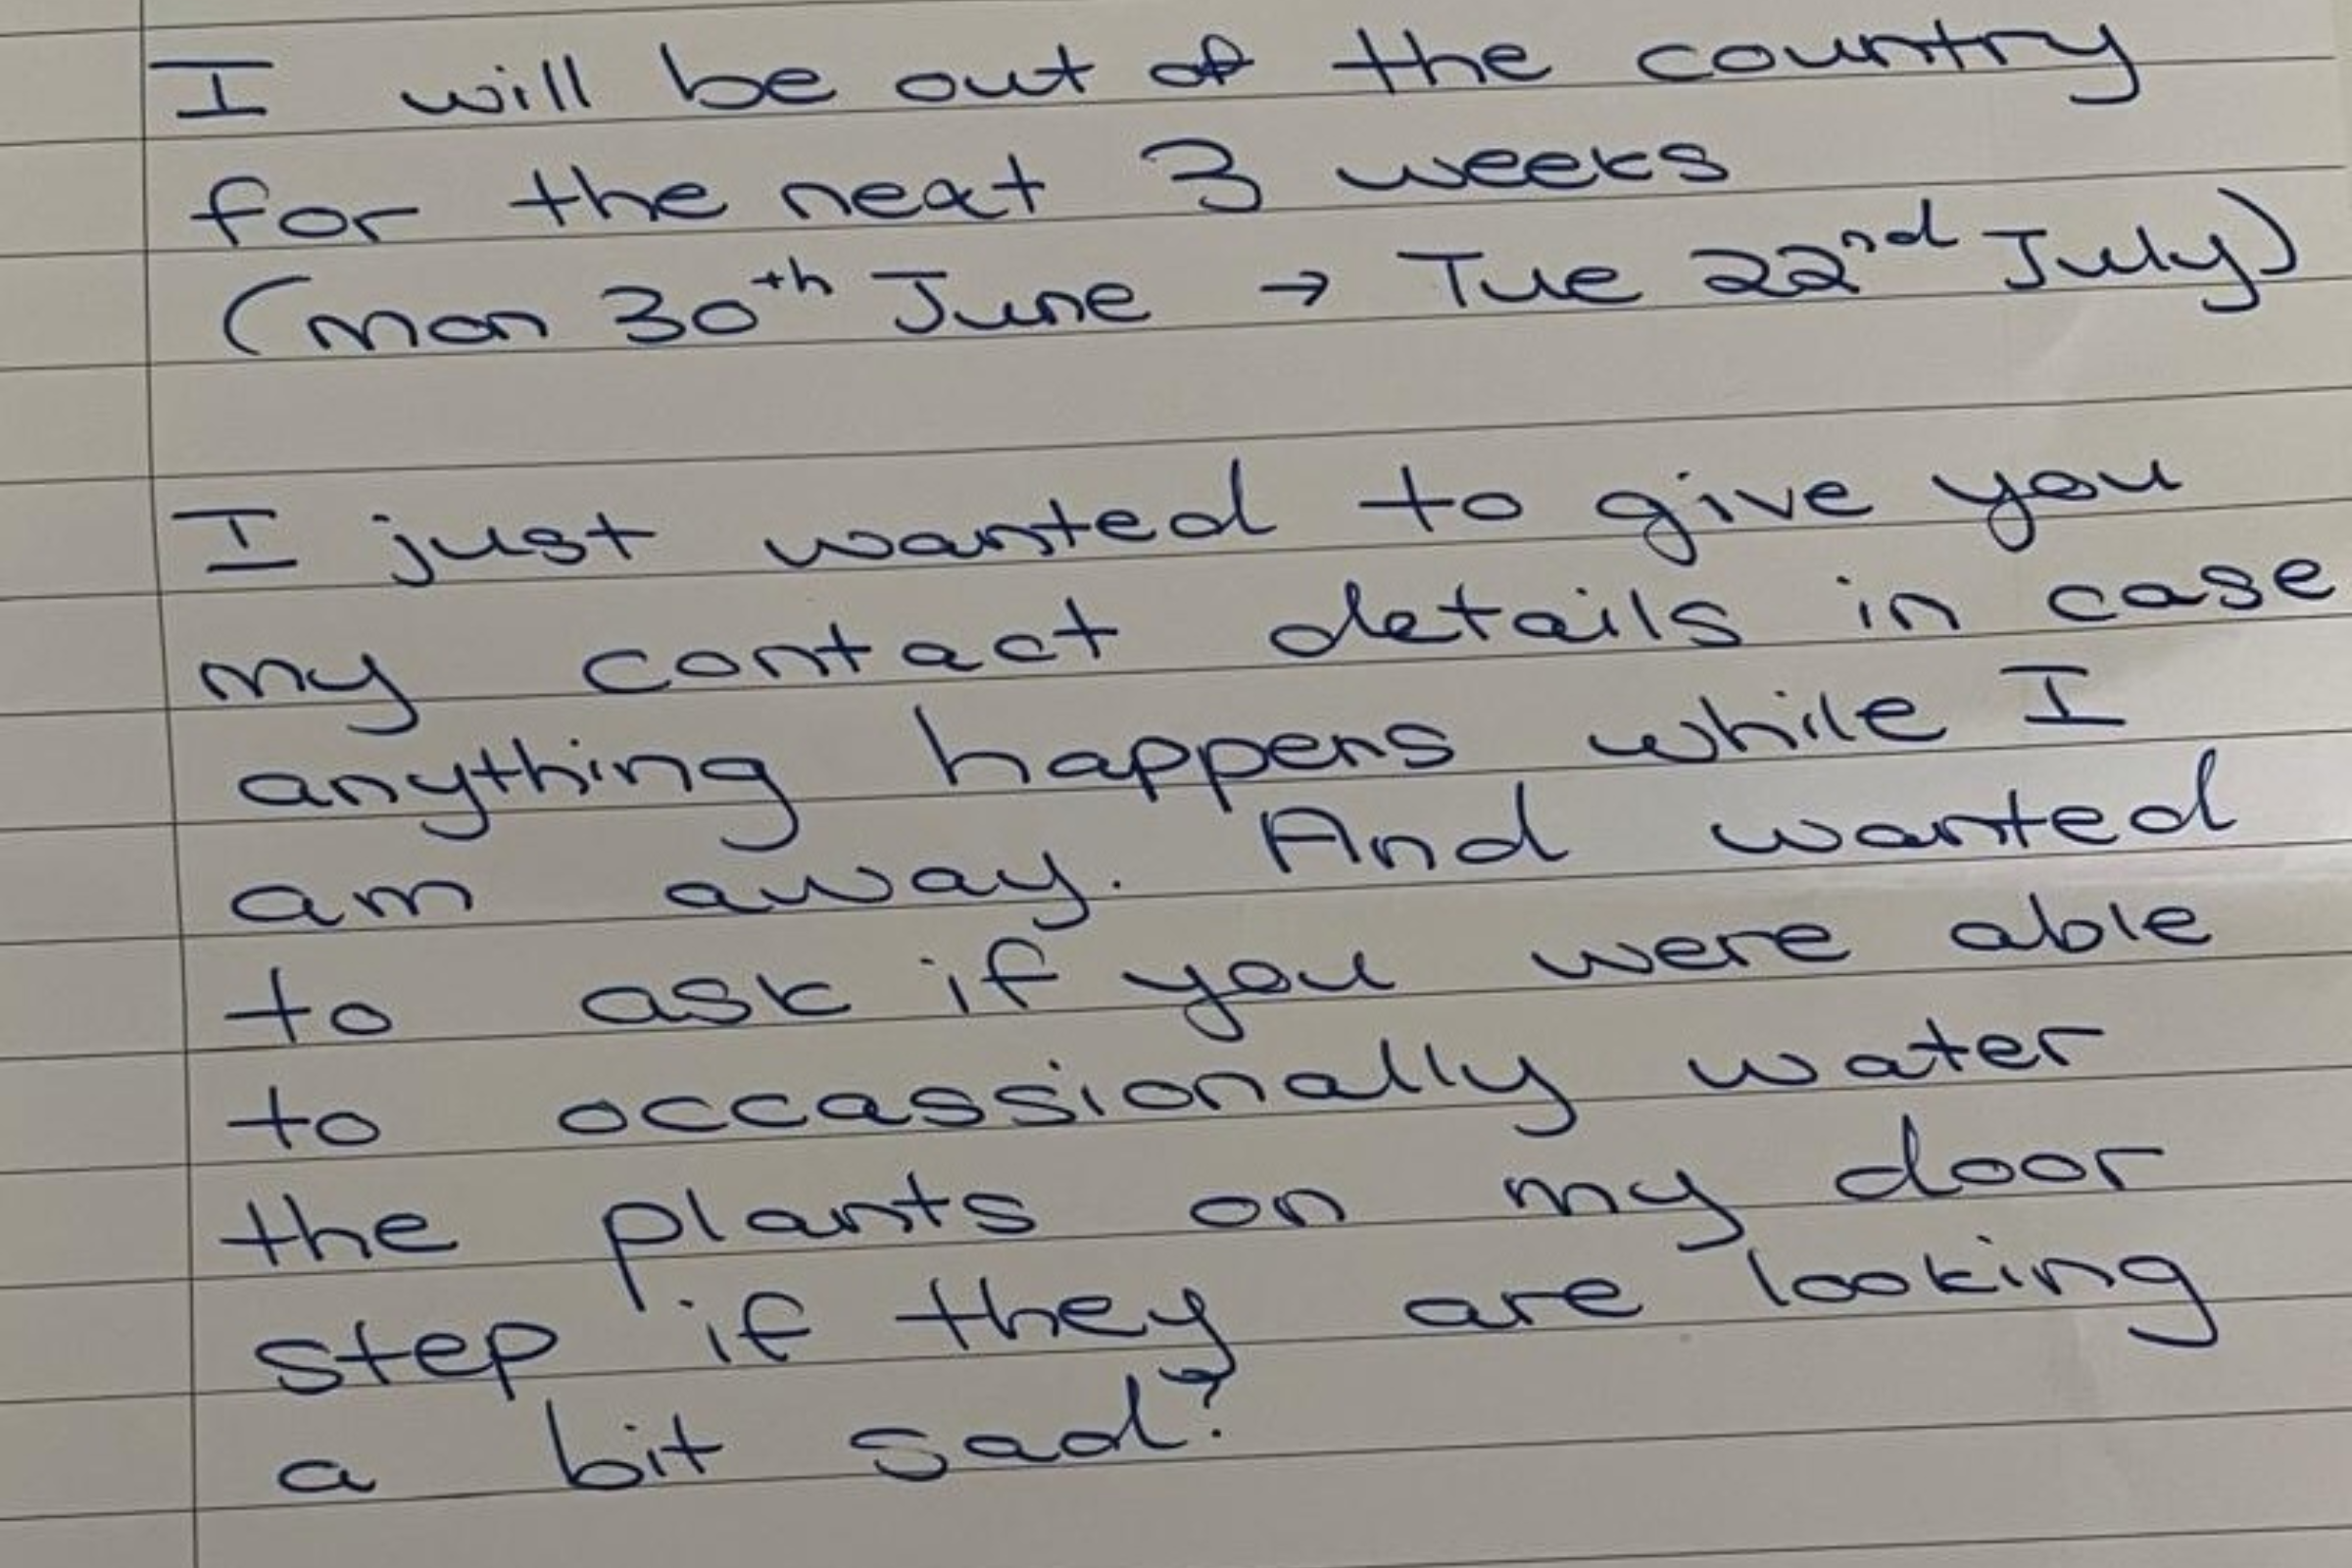 I will be out of the country
for the next 3 weeks
(mon 30th June → Tue 22nd July)
I just wanted to give you
my contact details in case
anything happens while I
am away. And wanted
to ask if you were able
to occassionally water
the plants on my door
step if they are looking
a bit sad?